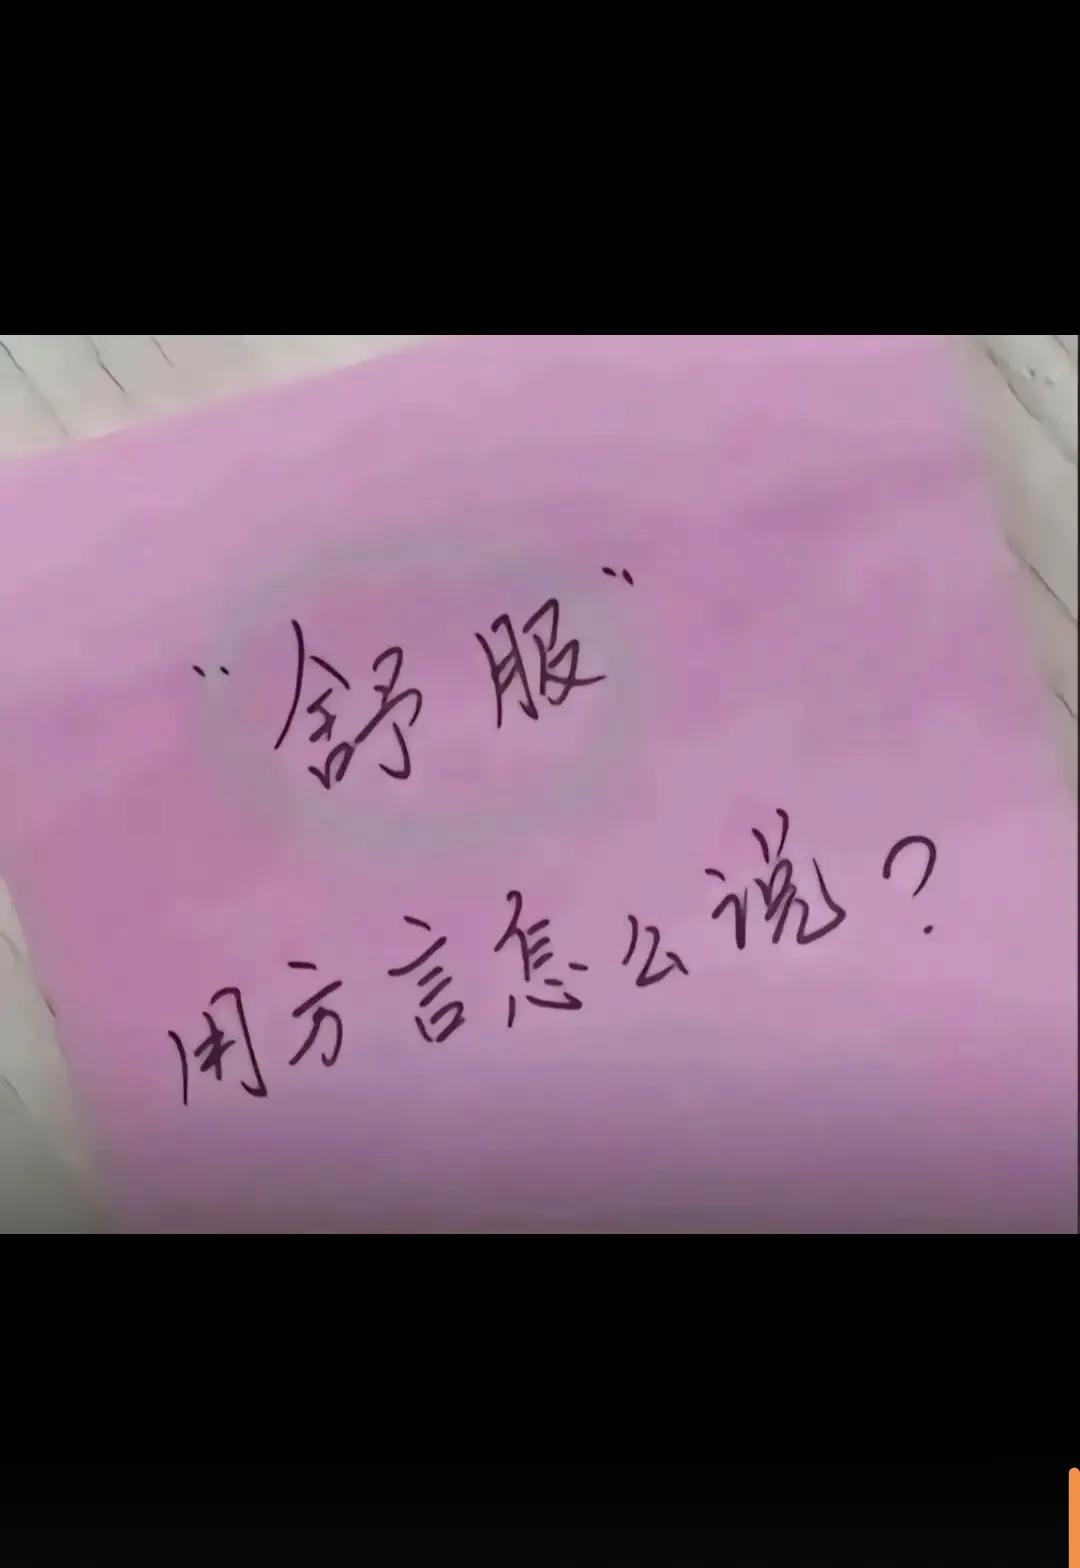 “舒服”
用方言怎么说？